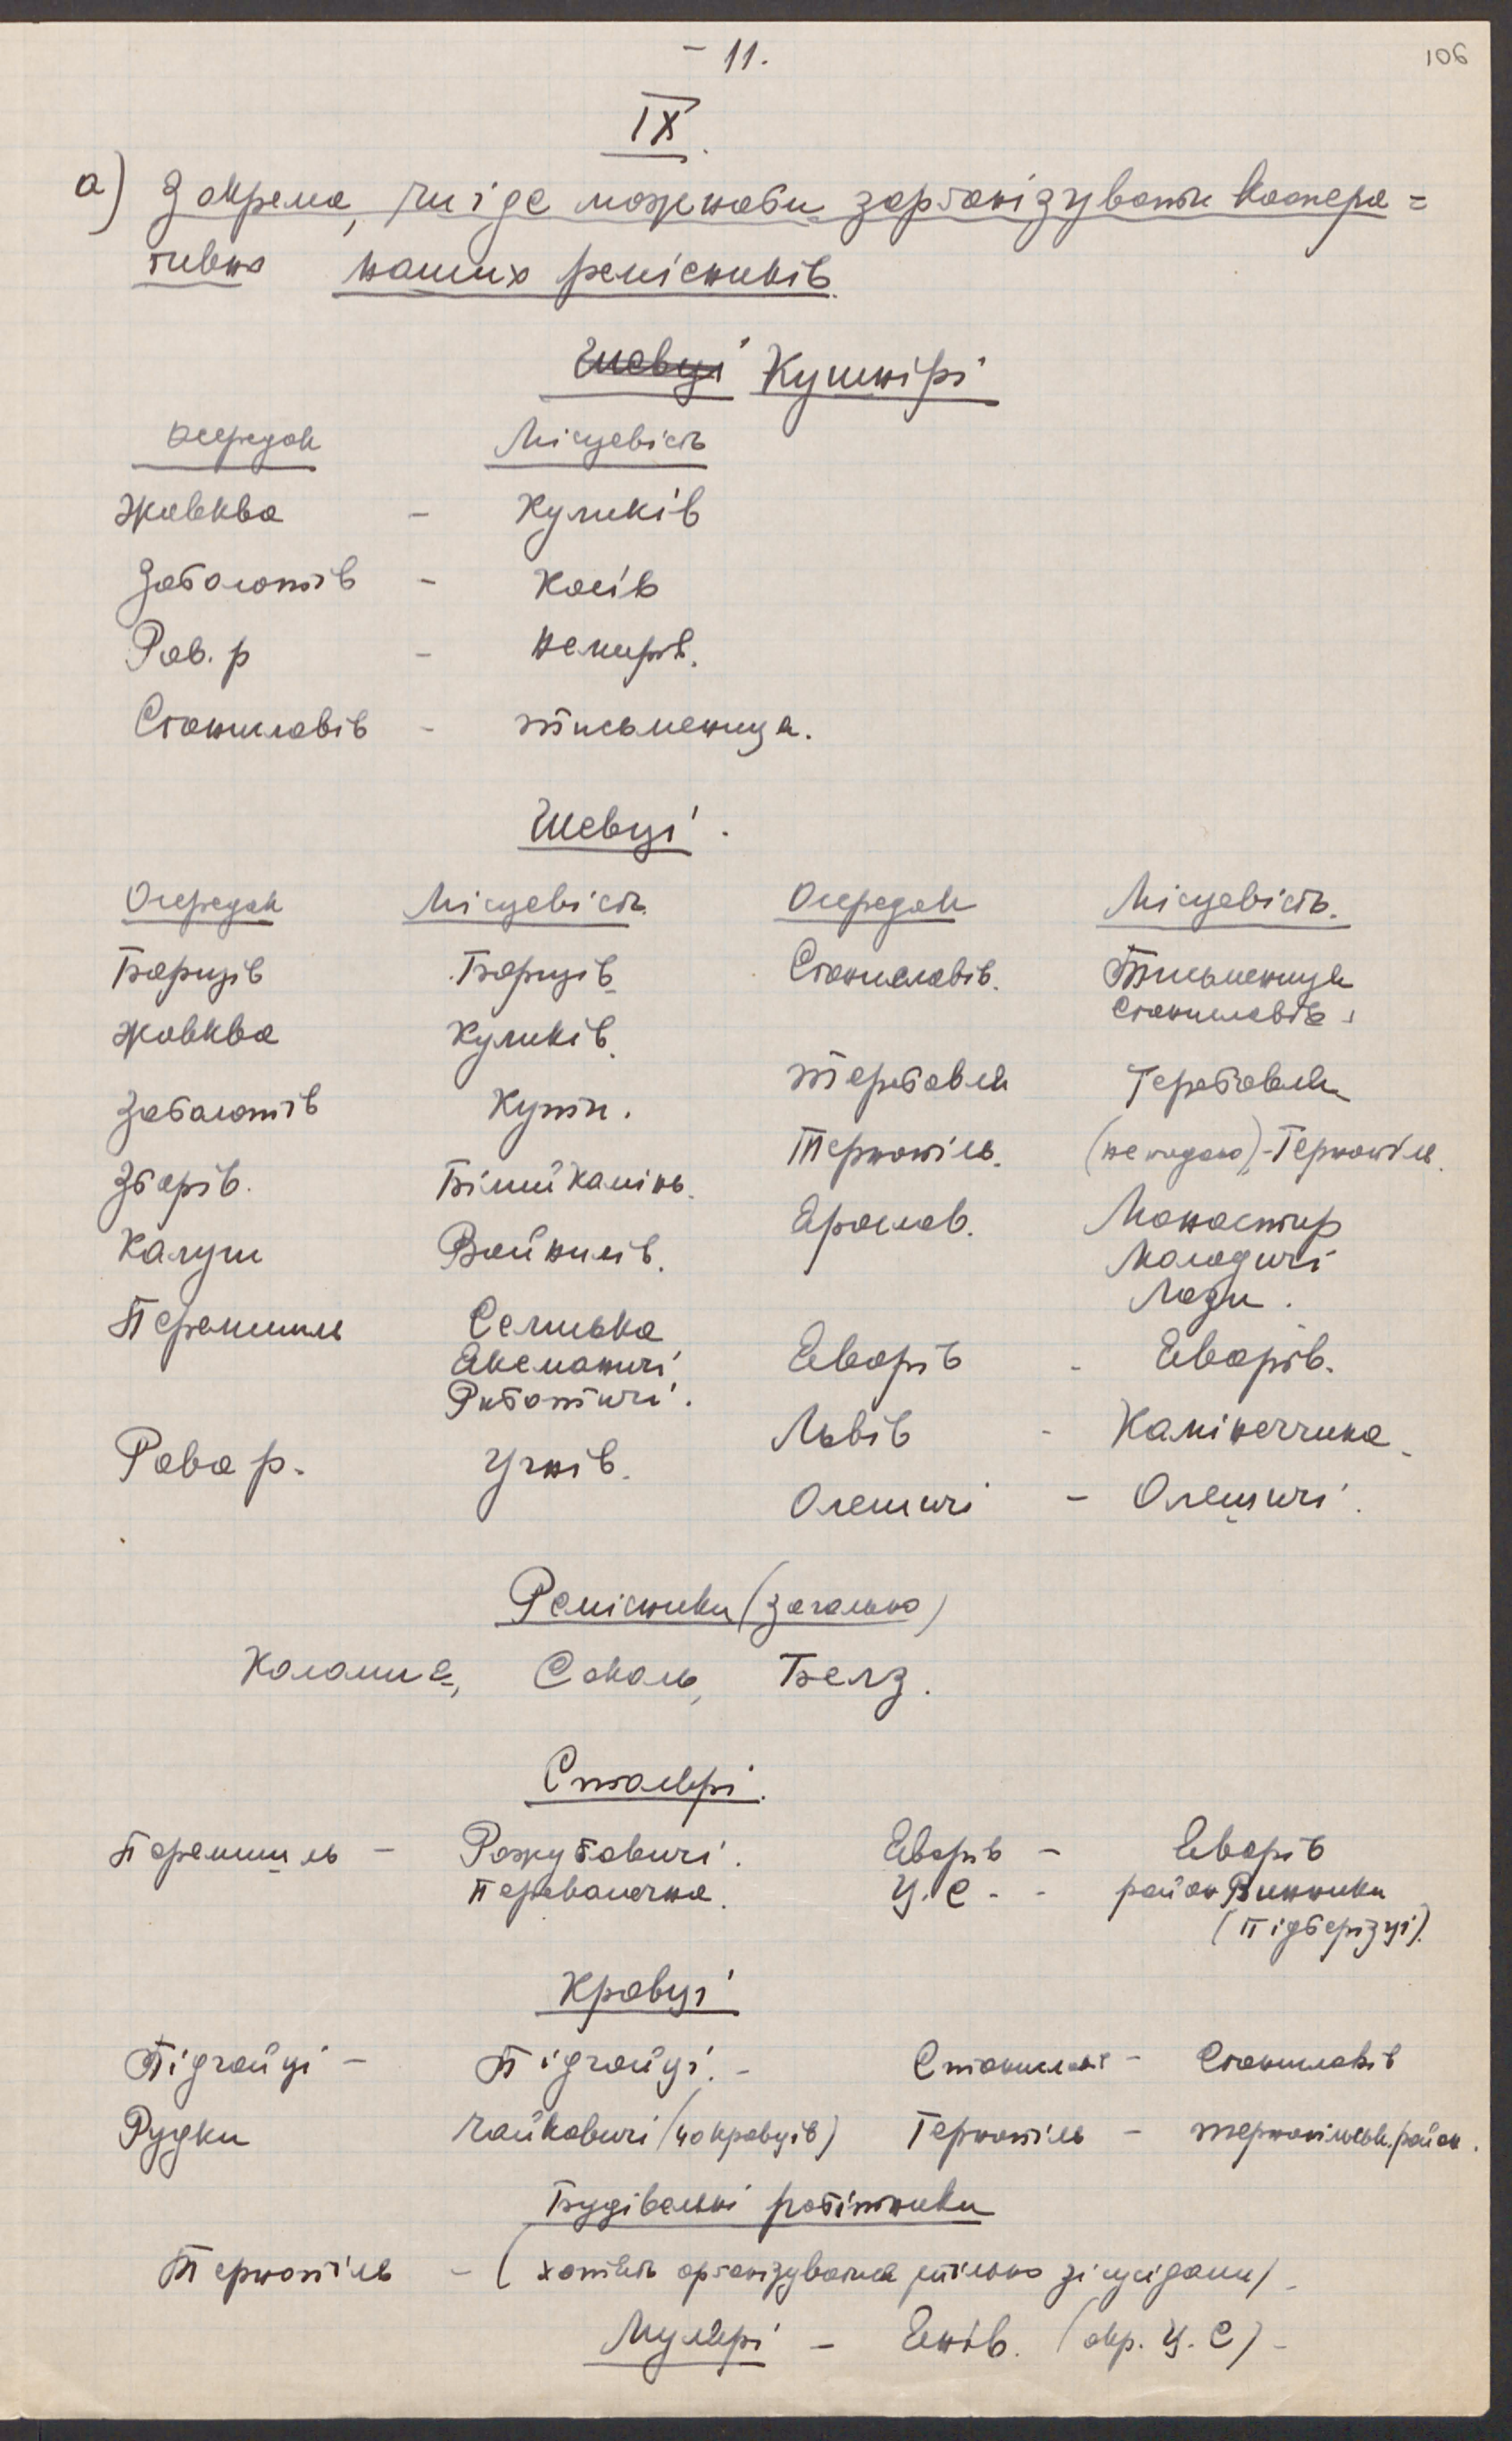 - 11.
106
IX.
а) Зокрема, чи і де можнаби зорганізувати коопера=
тивно наших ремісників.
Шевці Кушнірі
осередок Місцевість
Жовква - Куликів
Заболотів - Косів
Рав. р - Немирів.
Станиславів - Тисьмениця.
Шевці.
Осередок Місцевість Осередок Місцевість.
Борщів Борщів Станиславів. Тисьмениця
Станиславів
Жовква Куликів.
Теребовля Теребовля
Заболотів Кути.
Тернопіль. (не подано)-Тернопіль.
Зборів. Білий Камінь.
Ярослав. Монастир
Калуш Войнилів. Молодичі
Лази.
Перемишль Селиська
Аксманичі Яворів - Яворів.
Риботичі.
Львів - Камінеччина.
Рава р. Угнів.
Олешичі - Олешичі.
Ремісники (загально)
Коломия, Сокаль, Белз.
Столярі.
Перемишль - Рожубовичі. Яворів - Яворів
Перевалочна. У. С. - район Винники
(Підберізці).
Кравці
Підгайці - Підгайці. - Станиславів - Станиславів
Рудки Чайковичі (40 кравців) Тернопіль - тернопільськ. район.
Будівельні робітники
Тернопіль - (хотять організуватися спільно зі сусідами) -
Мулярі - Янів. (окр. У. С) -